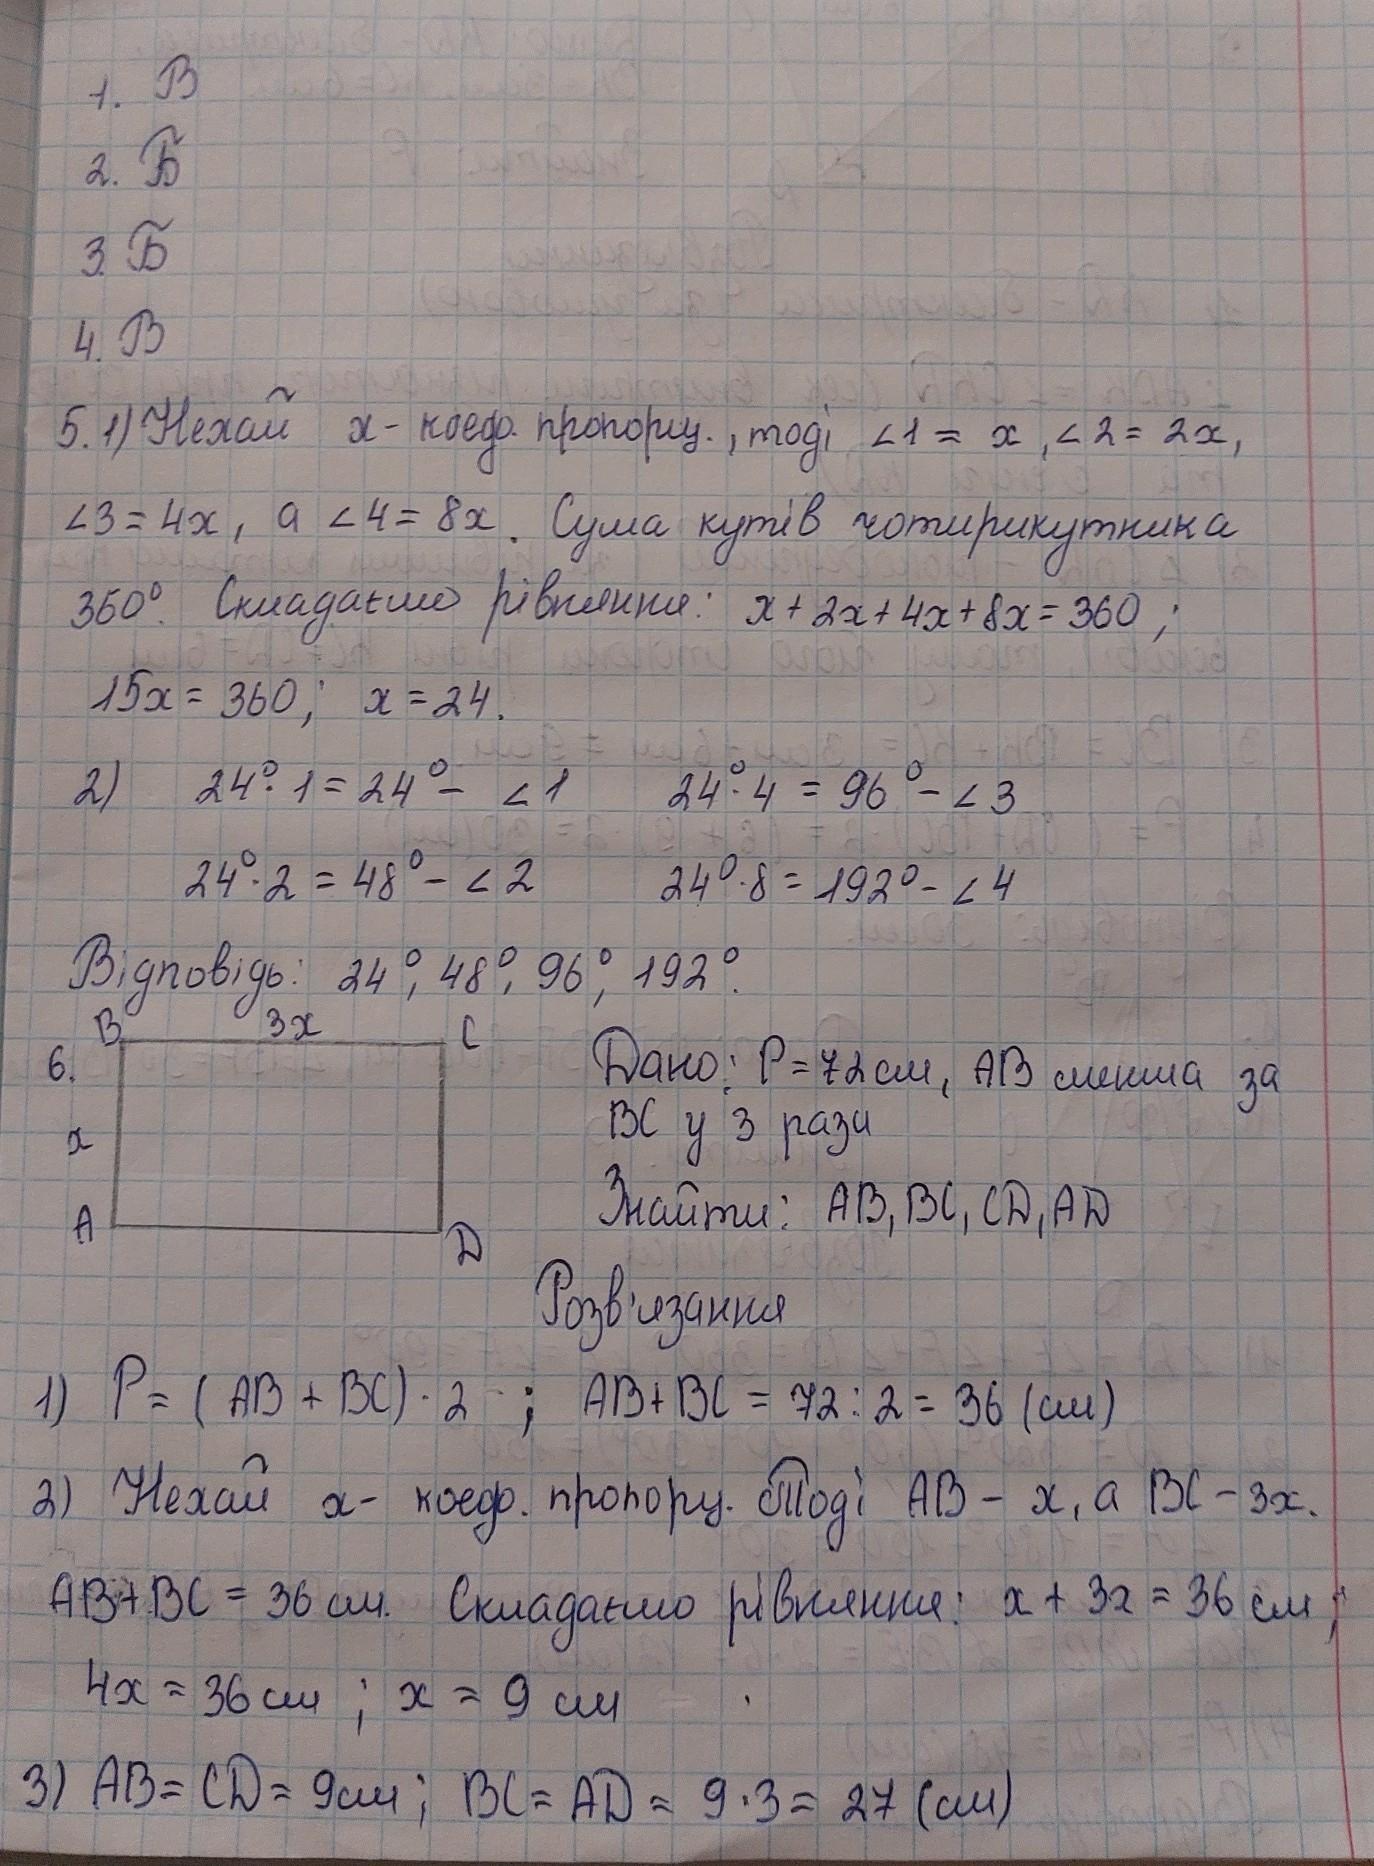 1. В
2. Б
3. Б
4. В
5. 1) Нехай х - коеф. пропорц., тоді ∠1 = х, ∠2 = 2х,
∠3 = 4х, а ∠4 = 8х. Сума кутів чотирикутника
360°. Складаємо рівняння: х + 2х + 4х + 8х = 360;
15х = 360; х = 24.
2) 24° · 1 = 24° - ∠1 24° · 4 = 96° - ∠3
24° · 2 = 48° - ∠2 24° · 8 = 192° - ∠4
Відповідь: 24°, 48°, 96°, 192°.
B 3х C
6. Дано: P = 72 см, AB менша за
х BC у 3 рази
A D Знайти: AB, BC, CD, AD
Розв'язання
1) P = (AB + BC) · 2 ; AB + BC = 72 : 2 = 36 (см)
2) Нехай х - коеф. пропорц. Тоді AB - х, а BC - 3х.
AB + BC = 36 см. Складаємо рівняння: х + 3х = 36 см;
4х = 36 см ; х = 9 см
3) AB = CD = 9 см; BC = AD = 9 · 3 = 27 (см)